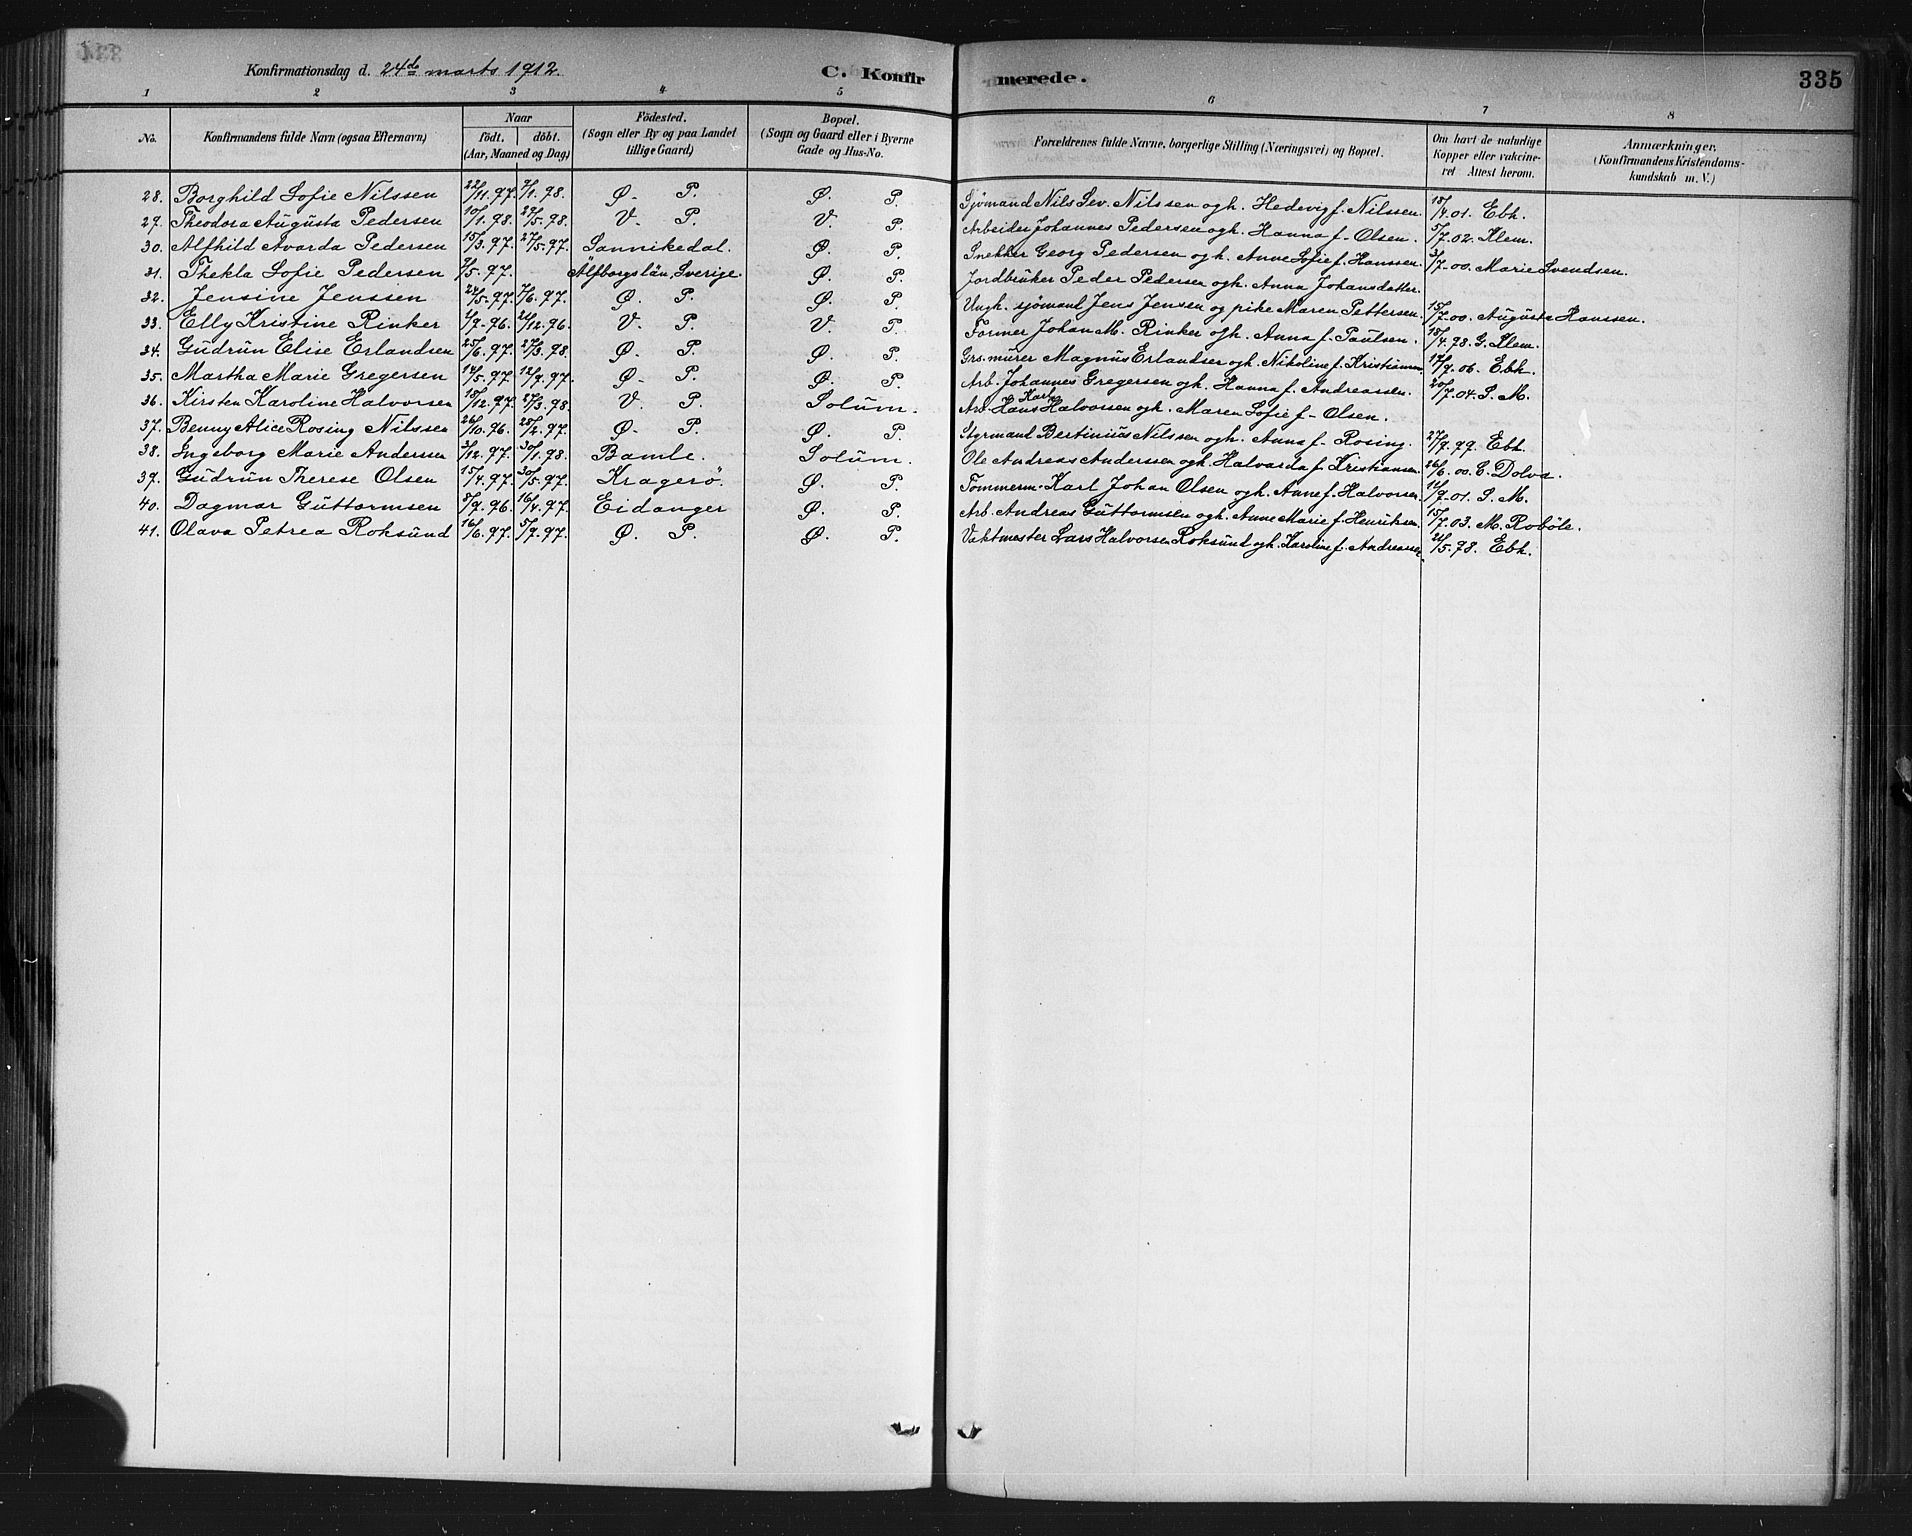 Konfirmationsdag d. 24de marts 1912. C. Konfirmerede. 335
1 2 3 4 5 6 7 8
No. Konfirmandens fulde Navn (ogsaa Efternavn) Naar födt. döbt. (Aar, Maaned og Dag) Födested. (Sogn eller By og paa Landet tillige Gaard) Bopæl. (Sogn og Gaard eller i Byerne Gade og Hus-No. Forældrenes fulde Navne, borgerlige Stilling (Næringsvei) og Bopæl. Om havt de naturlige Kopper eller vakcineret Attest herom. Anmærkninger. (Konfirmandens Kristendomskundskab m. V.)
28. Borghild Sofie Nilssen 22/11.97. 9/1.98. Ø. P. Ø. P. Sjömand Nils Sev. Nilssen og h. Hedevig f. Nilssen. 18/4.01. Ebh.
29. Theodora Augusta Pedersen 10/1.98. 29/5.98. V. P. V. P. Arbeider Johannes Pedersen og h. Hanna f. Olsen. 5/7.02. Klem.
30. Alfhild Avarda Pedersen 15/3.97. 27/5.97. Sannikedal. Ø. P. Snekker Georg Pedersen og h. Anne Sofie f. Hanssen. 3/7.00. Marie Svendsen.
31. Thekla Sofie Pedersen 2/5.97. Älfborgs län, Sverige. Ø. P. Jordbruker Peder Pedersen og h. Anna Johansdatter.
32. Jensine Jenssen 24/5.97. 7/6.97. Ø. P. Ø. P. Ungk. sjömand Jens Jensen og pike Maren Pettersen. 15/7.00. Augusta Hanssen.
33. Elly Kristine Rinker 2/9.96. 26/12.96. V. P. V. P. Former Johan M. Rinker og h. Anna f. Paulsen. 18/4.98. G. Klem.
34. Gudrun Elise Erlandsen 25/6.97. 27/3.98. Ø. P. Ø. P. Grs. murer Magnus Erlandsen og h. Nikoline f. Kristiansen. 17/9.06. Ebh.
35. Martha Marie Gregersen 14/5.97. 12/9.97. Ø. P. Ø. P. Arb. Johannes Gregersen og h. Hanna f. Andreassen. 20/7.04. S. M.
36. Kirsten Karoline Halvorsen 18/12.97. 27/3.98. V. P. Solum. Arb. Hans Karl Halvorsen og h. Maren Sofie f. Olsen.
37. Benny Alice Rosing Nilssen 26/10.96. 28/2.97. Ø. P. Ø. P. Styrmand Bertinius Nilssen og h. Anna f. Rosing. 27/9.99. Ebh.
38. Ingeborg Marie Andersen 3/12.97. 30/1.98. Bamle. Solum. Ole Andreas Anderssen og h. Halvarda f. Kristiansen. 26/6.00. C. Dolva.
39. Gudrun Therese Olsen 15/4.97. 30/5.97. Kragerö. Ø. P. Tömmerm. Karl Johan Olsen og h. Anne f. Halvorsen. 12/9.01. S. M.
40. Dagmar Guttormsen 8/9.96. 16/4.97. Eidanger Ø. P. Arb. Andreas Guttormsen og h. Anne Marie f. Henriksen. 15/7.03. M. Roböle.
41. Olava Petrea Roksund 16/6.97. 5/9.97. Ø. P. Ø. P. Vaktmester Lars Halvorsen Roksund og h. Karoline f. Andreassen. 21/5.98. Ebh.